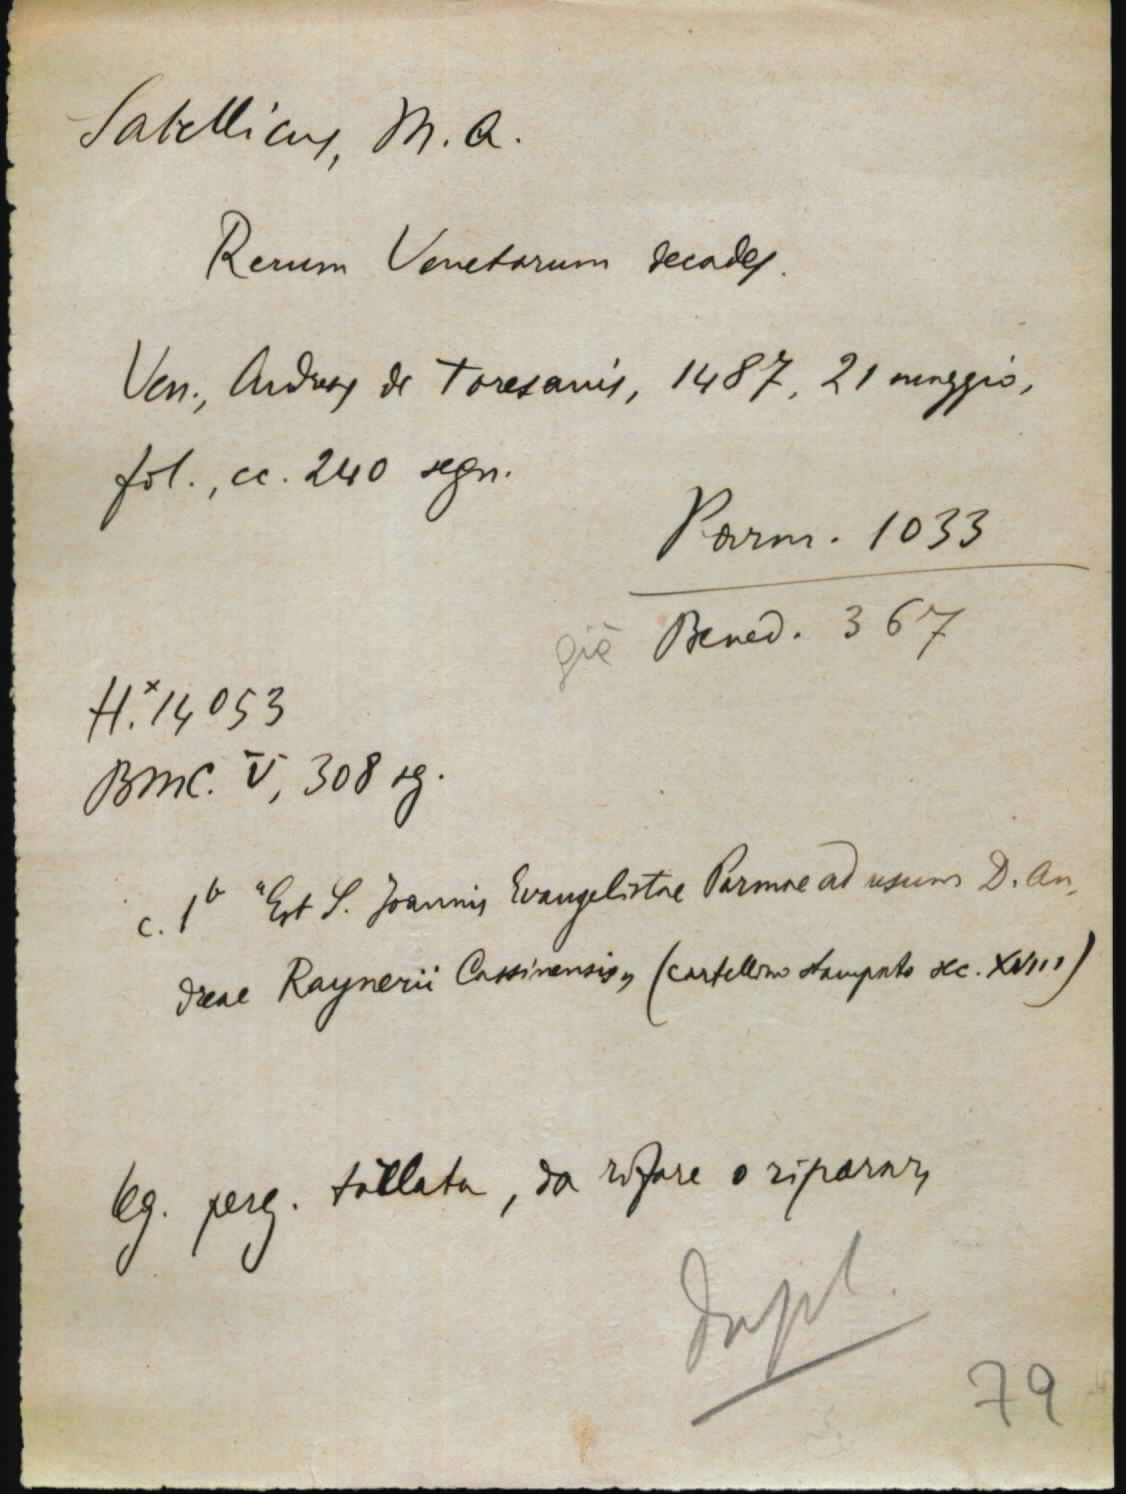 Sabellicus, M. A.
Rerum Venetarum decades.
Ven., Andreas de Toresanis, 1487, 21 maggio,
fol., cc. 240 segn.
Parm. 1033
già Bened. 367
H.* 14053
BMC. V, 308 sg.
c. 1b "Est S. Joannis Evangelistae Parmae ad usum D. An,
dreae Raynerii Cassinensis„ (cartellino stampato sec. XVIII)
leg. perg. tallata, da rifare o riparare
Dupl.
79